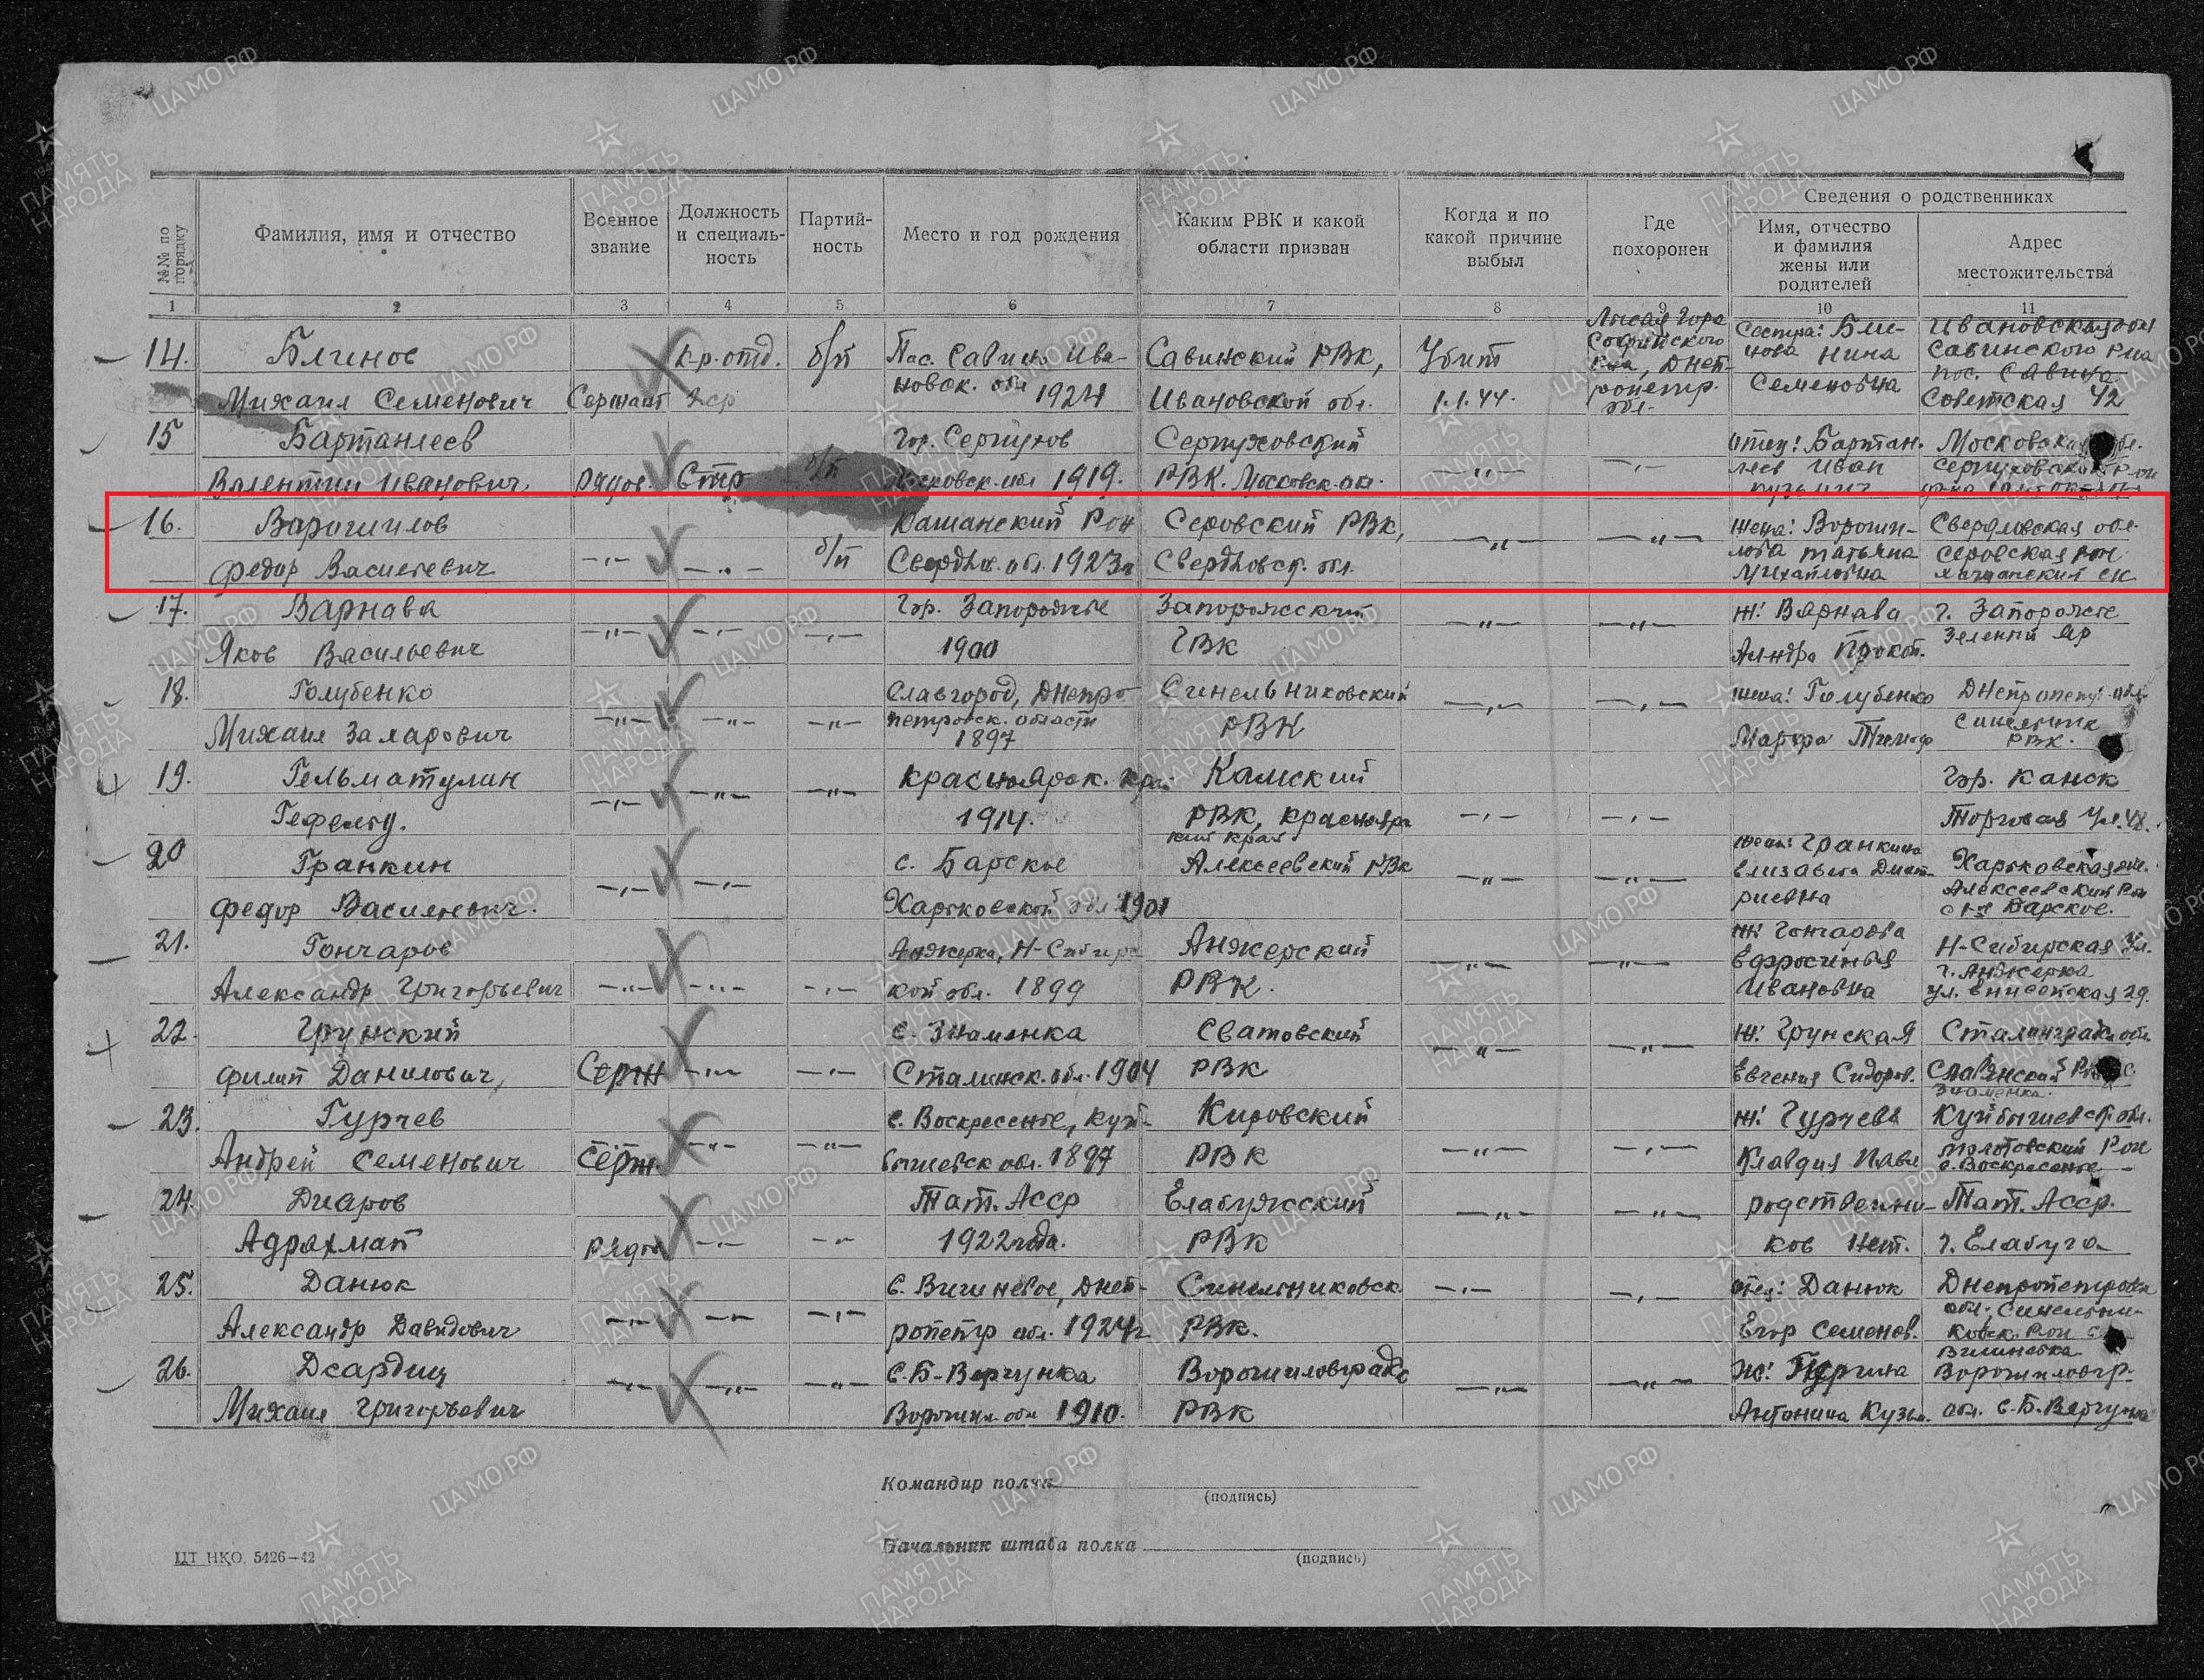 №№ по порядку
Фамилия, имя и отчество
Военное звание
Должность и специаль-ность
Партий-ность
Место и год рождения
Каким РВК и какой области призван
Когда и по какой причине выбыл
Где похоронен
Сведения о родственниках
Имя, отчество и фамилия жены или родителей
Адрес местожительства
1 2 3 4 5 6 7 8 9 10 11
14. Блинов к-р. отд. б/п Пос. Савино Ива- Савинский РВК, Убит Лысая Гора Софийского Днеп- Сестра: Бли- Ивановская обл
Михаил Семенович Сержант новск. обл 1924 Ивановской обл. 1.1.44. ропетр. обл. нова Нина Семеновна Савинского пос. Савина Советская 42
15 Бартанлеев Гор. Серпухов Серпуховский отец: Бартан- Московская обл.
Валентин Иванович Рядов. Стр б/п Московск. обл 1919. РВК. Московск. обл. -"- -"- леев Иван Кузьмич Серпуховский
16. Варошилов Рон Серовский РВК, жена: Вороши- Свердловская обл.
Федор Васильевич -"- -"- б/п Свердлов. обл. 1923г Свердловск. обл. -"- -"- лова Татьяна Михайловна Серовская рон
17. Варнава Гор. Запорожье Запорожский ж: Варнава г. Запорожье
Яков Васильевич -"- -"- -"- 1900 ГВК -"- -"- Прокоп. Зеленый Яр
18. Голубенко Славгород, Днепро- Синельниковский жена: Голубенко
Михаил Захарович -"- -"- -"- петровск. области 1897 РВК -"- -"- Марфа РВК.
19. Гельматулин Красноярск. край Камский Гор. Канск
-"- -"- -"- 1914. РВК, Красноярский край -"- -"- Торговая ул. 48.
20 Гранкин с. Барское Алексеевский РВК жена: Гранкина Харьковская обл.
Федор Васильевич. -"- -"- Харьковской обл 1901 -"- -"- Елизавета Дмит- риевна Алексеевский Рон Барское.
21. Гончаров Анжерка, Н-Сибирс Анжерский ж: Гончарова Н-Сибирская
Александр Григорьевич -"- -"- -"- кой обл. 1899 РВК. -"- -"- Ефросинья Ивановна г. Анжерка ул. Енисейская 29.
22. Грунский с. Знаменка Сватовский ж: Грунская
Филип Данилович, Серж -"- -"- Сталинск. обл. 1904 РВК -"- -"- Евгения Сидоров. Славянский Знаменка.
23. Гурчев с. Воскресенье, Куй- Кировский ж: Гурчева Куйбышевск. обл.
Андрей Семенович Серж. -"- -"- бышевск обл. 1897 РВК -"- -"- Клавдия Павл Молотовский Рон с. Воскресенье
24. Диаров Тат. Асср Елабужский родственни- Тат. Асср.
Адрахмат Рядов -"- -"- 1922 года. РВК -"- -"- ков нет. г. Елабуга
25. Данюк с. Вишневое, Днеп- Синельниковск. отец: Данюк Днепропетровск
Александр Давидович -"- -"- -"- ропетр обл. 1924г РВК. -"- -"- Егор Семенов. обл, Синельни- ковск. Рон
26. С. Б-Вергунка Ворошиловградс Ворошиловгр.
Михаил Григорьевич -"- -"- -"- Ворошил. обл 1910. РВК -"- -"- Антонина Кузьм. обл. с. Б. Вергунка
Командир полка
(подпись)
Начальник штаба полка
(подпись)
ЦТ НКО. 5426—42
ПАМЯТЬ НАРОДА
ЦАМО РФ